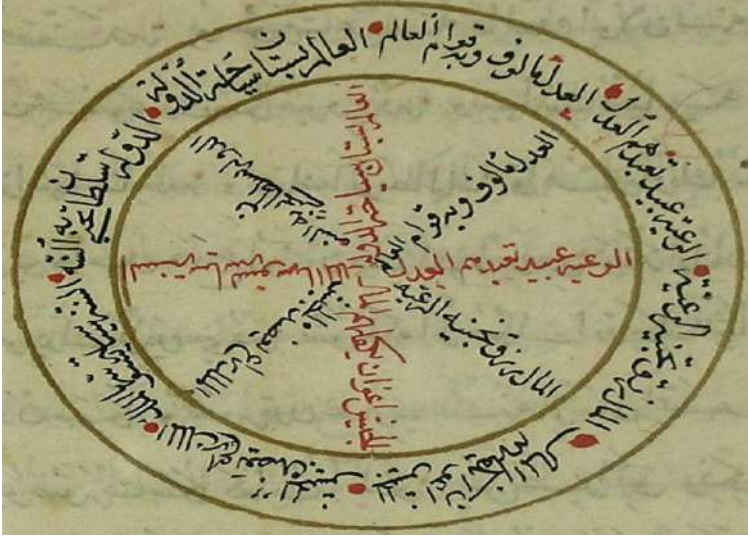 العالم بستان سياجه الدولة
الدولة سلطان تحيى به السنة
السنة سياسة يسوسها الملك
الملك راع يعضده الجيش
الجيش اعوان يكفلهم المال
المال رزق تجمعه الرعية
الرعية عبيد تعبدهم العدل
العدل مألوف وبه قوام العالم
العالم بستان سياجه الدولة
العدل مألوف وبه قوام العالم
الرعيه عبيد تعبدهم العدل
المال رزق تجمعه الرعيه
الجيش اعوان يكفلهم المال
الملك راع يعضده الجيش
السنة سياسة يسوسها الملك
الدولة سلطان تحيى به السنة